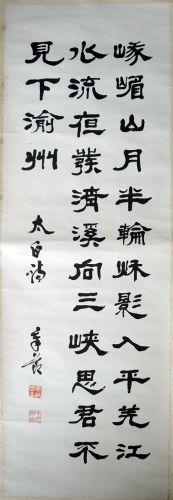 峨嵋山月半輪秋影入平羌江
水流夜發清溪向三峽思君不
見下渝州
太白詩